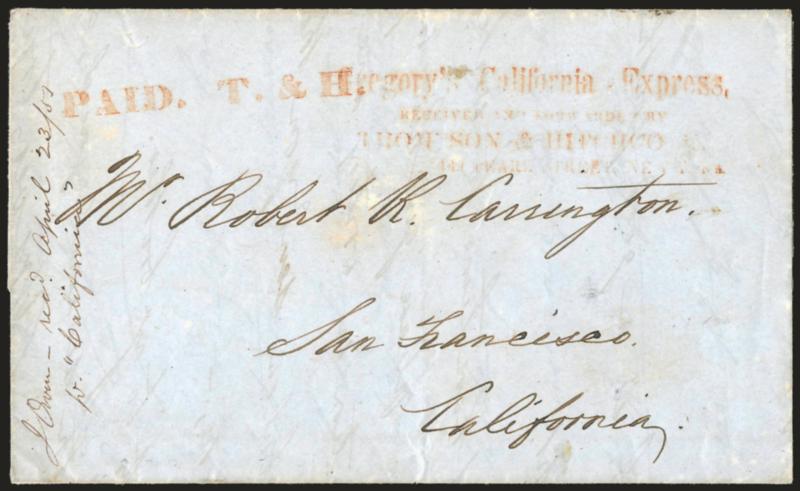 PAID. T. & H. Gregory's California Express,
RECEIVED AND FORWARDED BY
THOMPSON & HITCHCO
PEARL STREET NEW
Mr. Robert R. Carrington.
San Francisco.
California.
recd April 23/50
pr. "California"